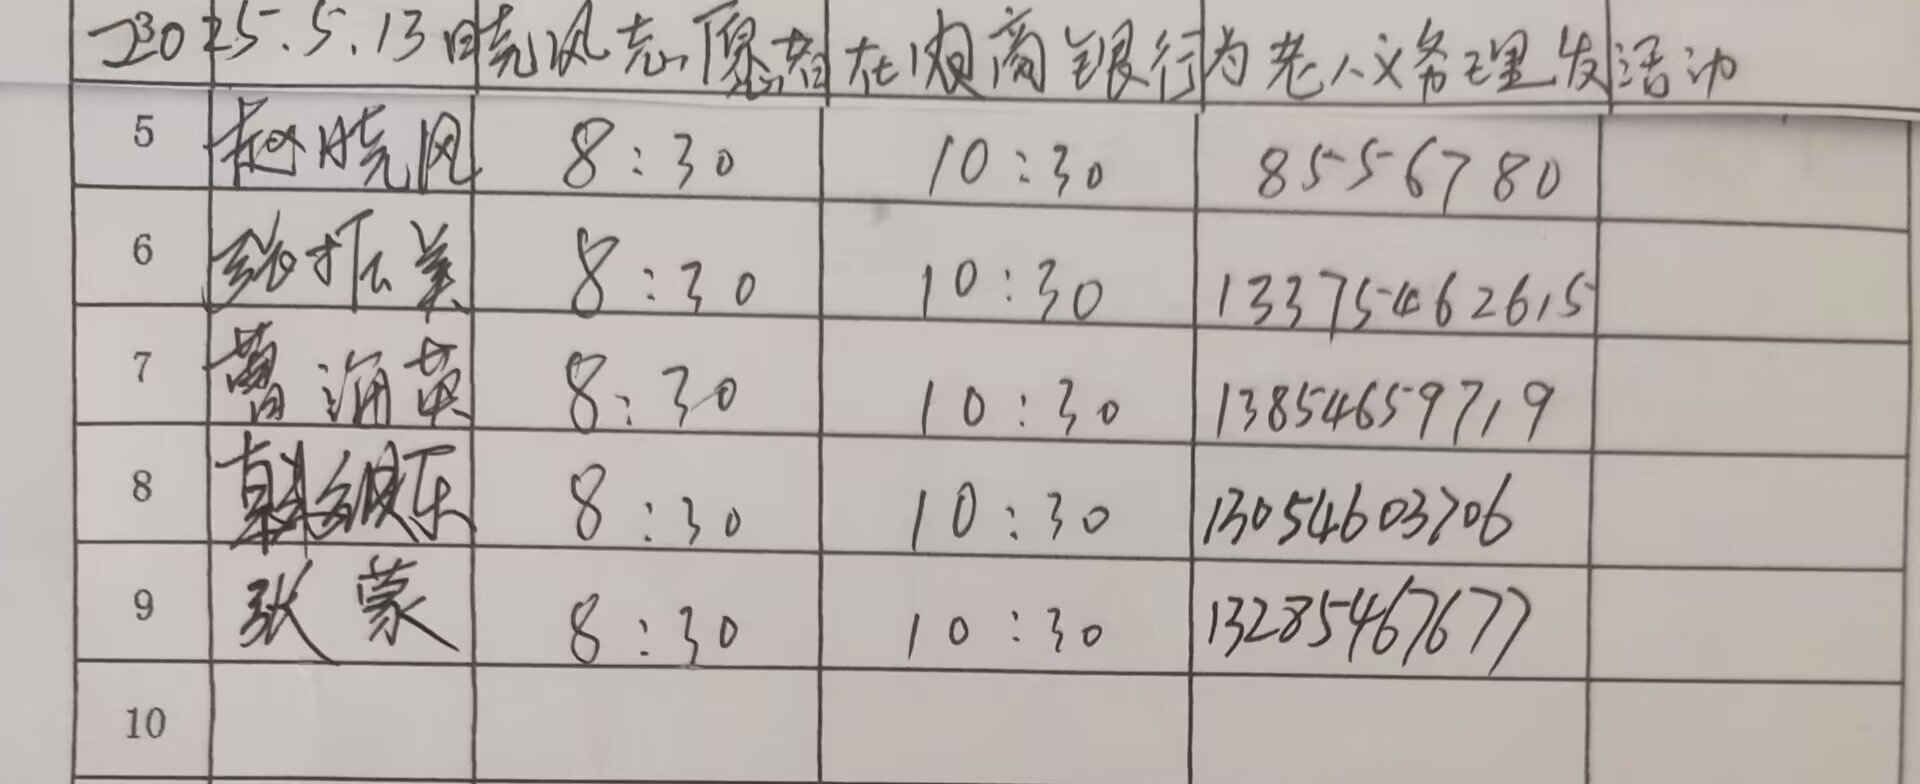 2025.5.13日晓风志愿者在农商银行为老人义务理发活动
5 赵晓风 8:30 10:30 8556780
6 张振美 8:30 10:30 13375462615
7 曹海英 8:30 10:30 13854659719
8 韩银东 8:30 10:30 13054603706
9 张蒙 8:30 10:30 13285467677
10